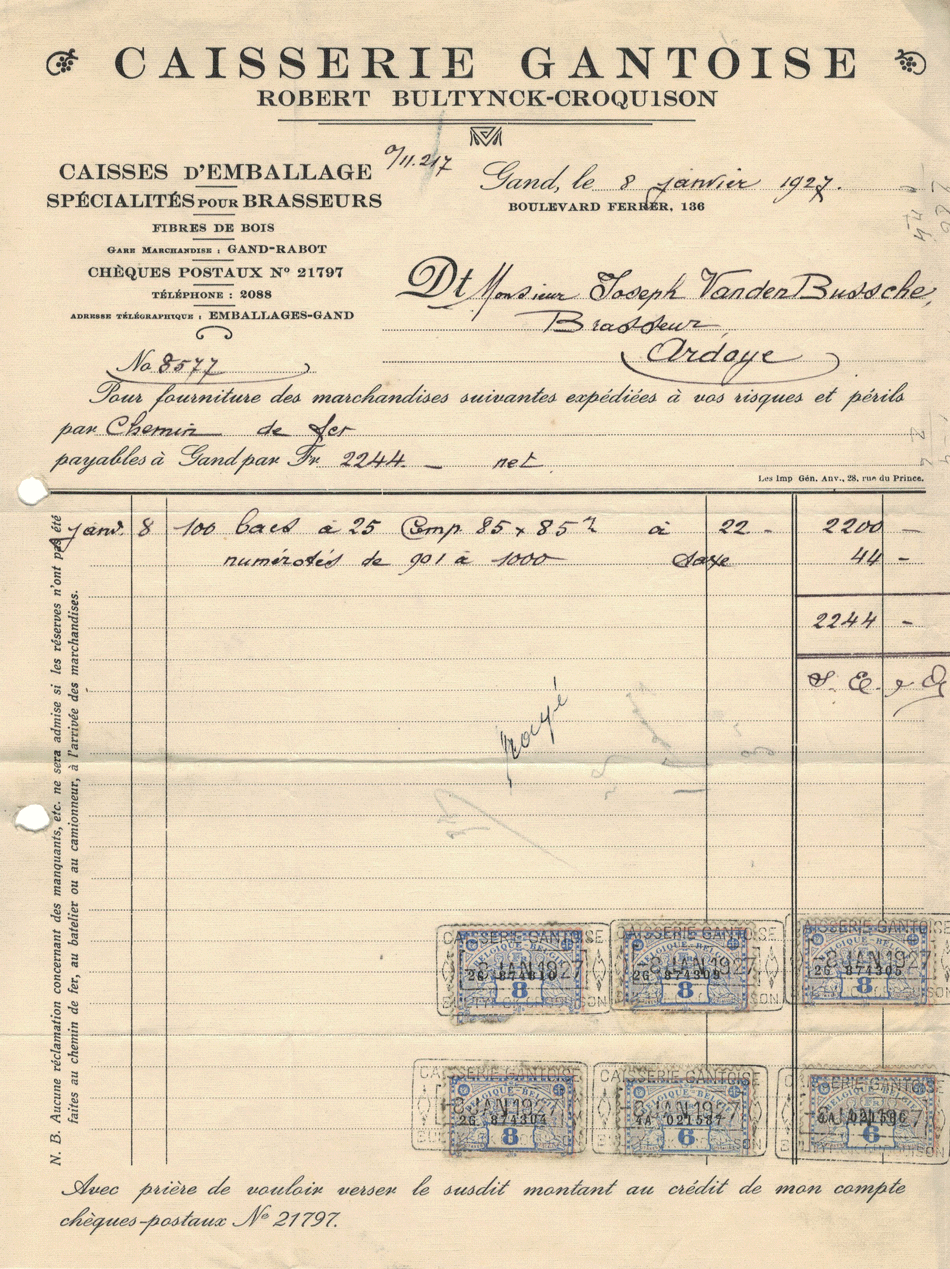 CAISSERIE GANTOISE
ROBERT BULTYNCK-CROQUISON
CAISSES D'EMBALLAGE
SPÉCIALITÉS POUR BRASSEURS
FIBRES DE BOIS
GARE MARCHANDISE : GAND-RABOT
CHÈQUES POSTAUX No 21797
TÉLÉPHONE : 2088
ADRESSE TÉLÉGRAPHIQUE : EMBALLAGES-GAND
No 8577
Gand, le 8 janvier 1927.
BOULEVARD FERRER, 136
Dt Monsieur Joseph VandenBussche,
Brasseur
Ardoye
Pour fourniture des marchandises suivantes expédiées à vos risques et périls
par Chemin de fer
payables à Gand par Fr 2244 - net.
Les Imp Gén. Anv., 28, rue du Prince.
janv. 8 100 bacs à 25 Comp 85 x 85 à 22 - 2200 -
numérotés de 901 à 1000 taxe 44 -
2244 -
S. E. e O
payé
N. B. Aucune réclamation concernant des manquants, etc. ne sera admise si les réserves n'ont pas été
faites au chemin de fer, au batelier ou au camionneur, à l'arrivée des marchandises.
CAISSERIE GANTOISE CAISSERIE GANTOISE CAISSERIE GANTOISE
BELGIQUE-BELGIË BELGIQUE-BELGIË BELGIQUE-BELGIË
-8 JAN 1927 -8 JAN 1927 -8 JAN 1927
2G 2G 2G 874305
8 8 8
CAISSERIE GANTOISE CAISSERIE GANTOISE CAISSERIE GANTOISE
-8 JAN 1927 -8 JAN 1927 -8 JAN 1927
2G 874304 4A 021587 4A
8 6 6
Avec prière de vouloir verser le susdit montant au crédit de mon compte
chèques-postaux No 21797.